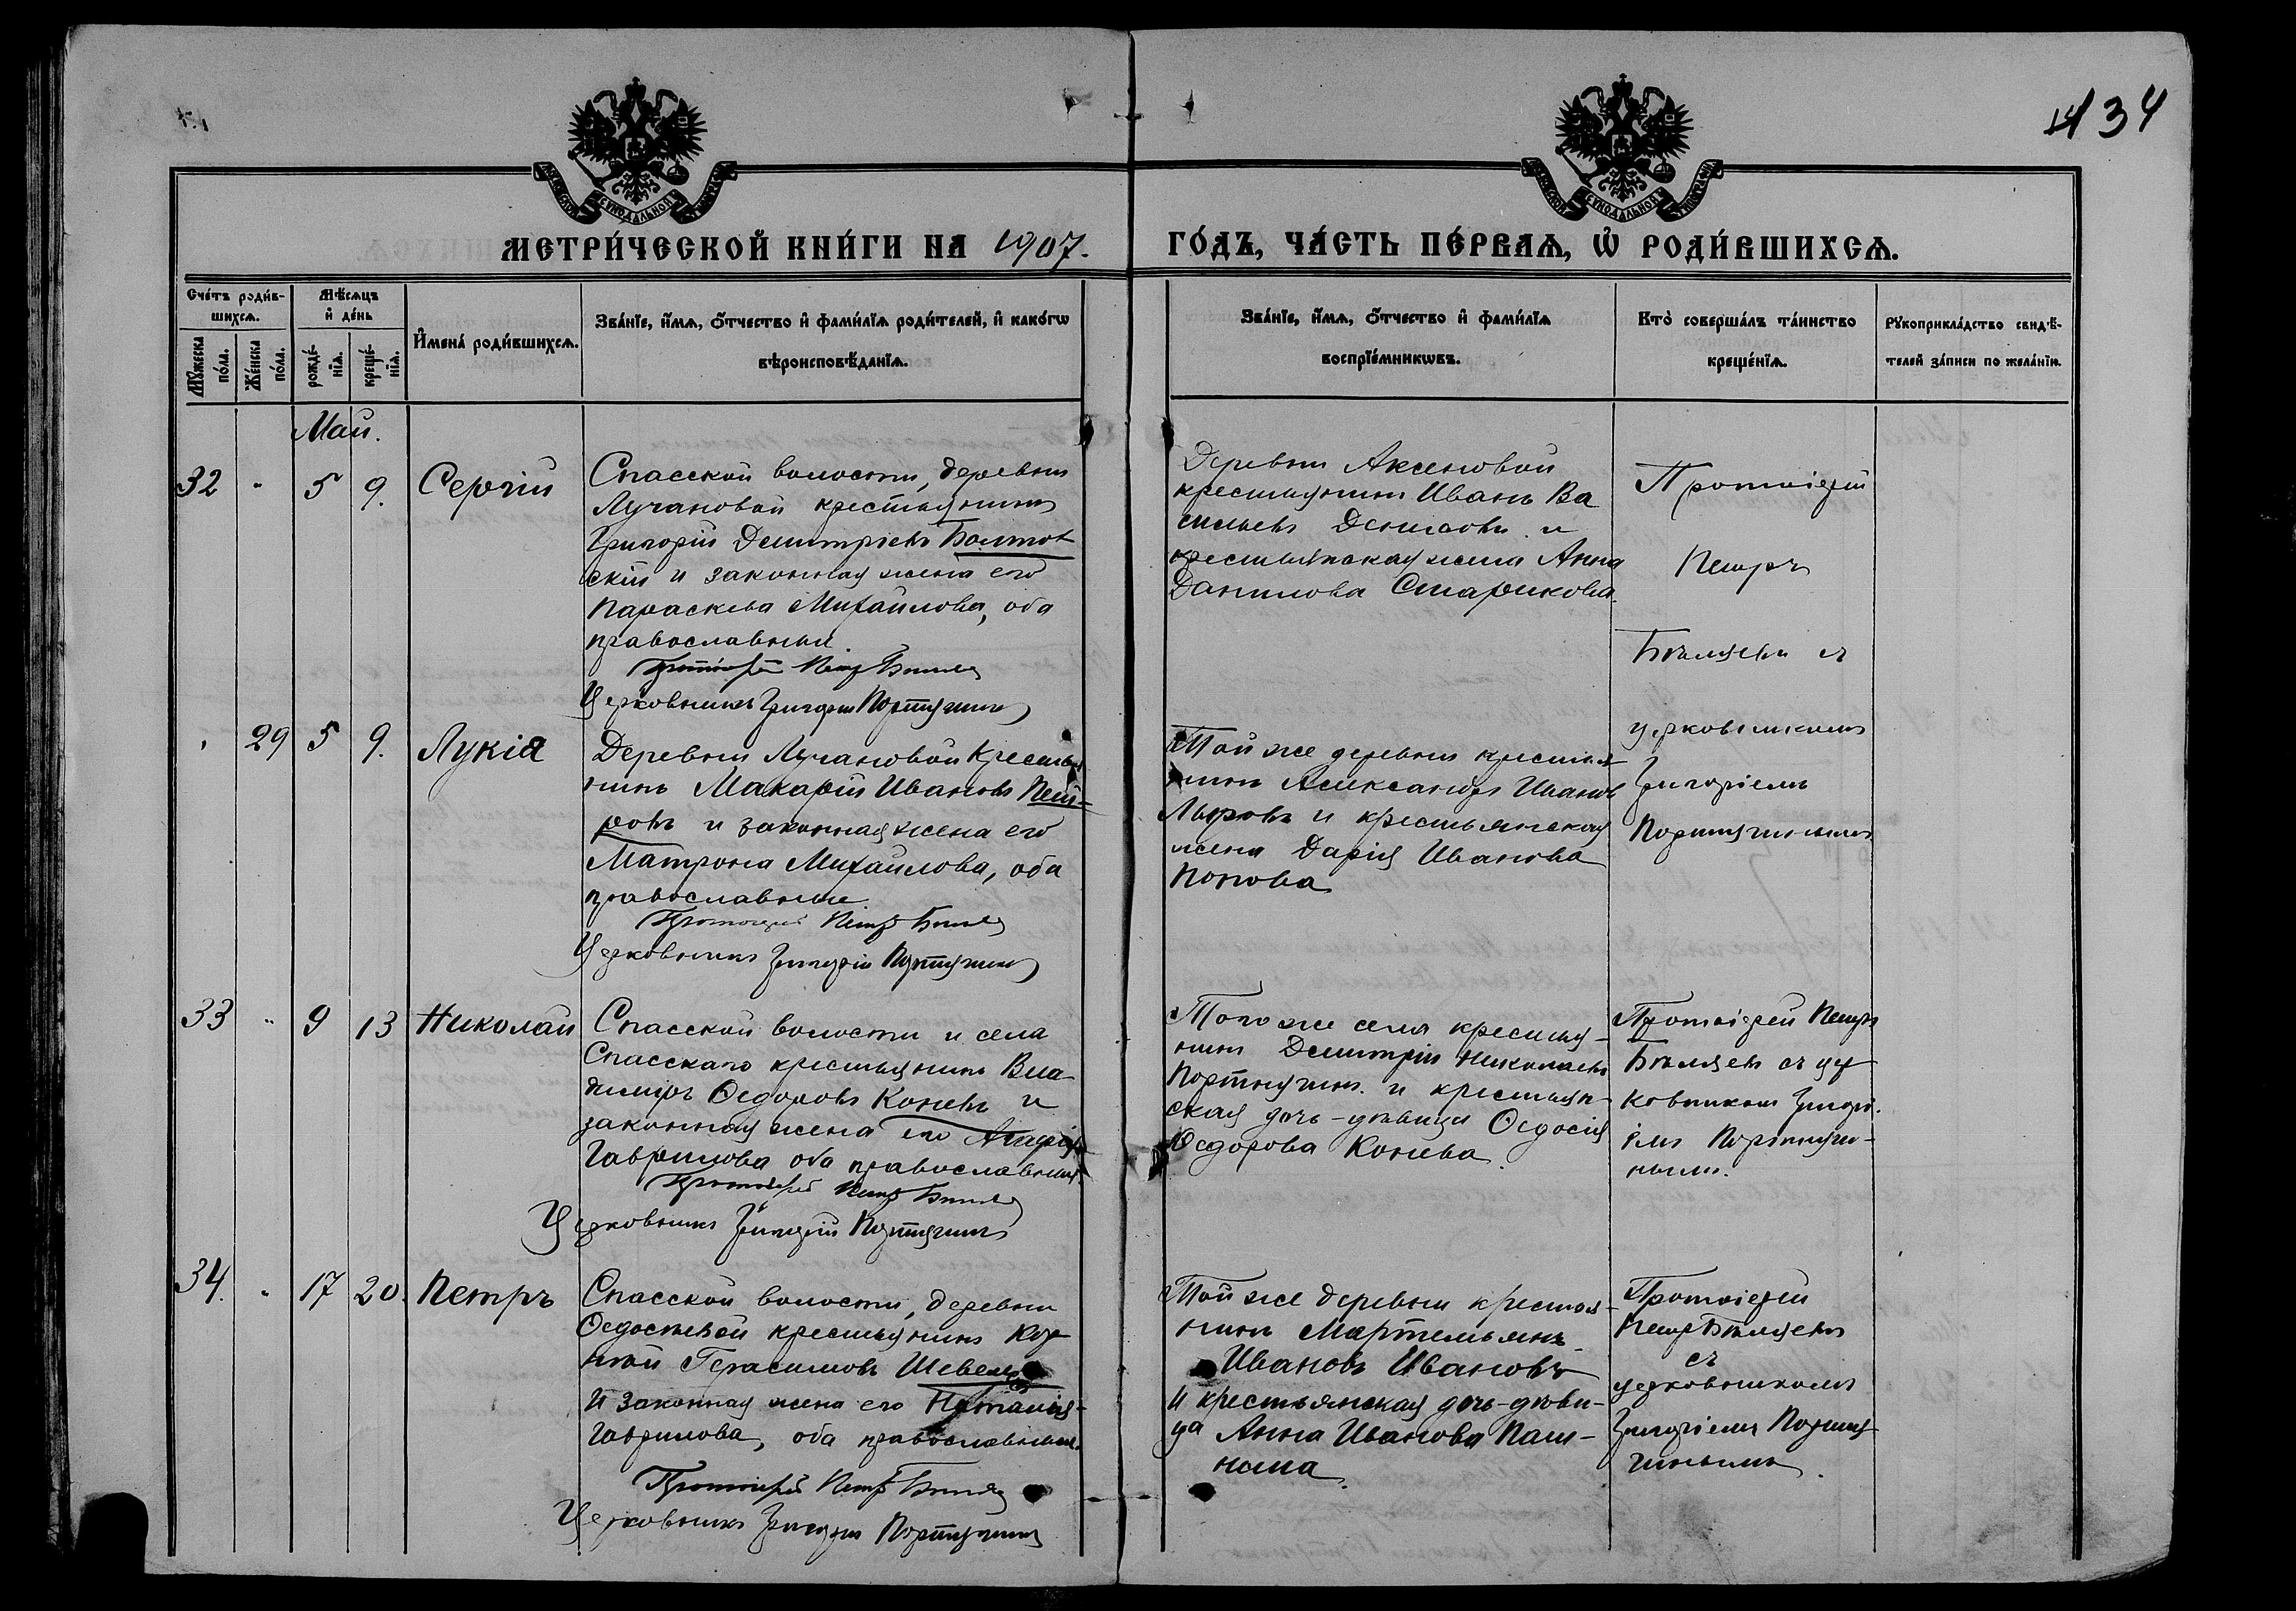 434
МЕТРИ́ЧЕСКОЙ КНИ́ГИ НА 1907.
ГО́ДЪ, ЧА́СТЬ ПЕ́РВАѦ, Ѡ҆ РОДИ́ВШИХСѦ.
Сче́тъ роди́в-
шихсѧ.
Мꙋ́жеска по́ла.
Же́нска по́ла.
Мѣ́сѧцъ
и҆ де́нь
рожде́-
нїѧ.
креще́-
нїѧ.
И҆мена̀ роди́вшихсѧ.
Зва́нїе, и҆́мѧ, ѻ҆́тчество и҆ фами́лїѧ роди́телей, и҆ како́гѡ
вѣроисповѣ́данїѧ.
Зва́нїе, и҆́мѧ, ѻ҆́тчество и҆ фами́лїѧ
воспрїе́мникѡвъ.
Кто̀ соверша́лъ та́инство
креще́нїѧ.
Рꙋкоприкла́дство свидѣ́-
телей за́писи по жела́нїю.
Май.
32 " 5 9. Сергій
Спасской волости, деревни
Лучановой крестьянинъ
Григорій Димитріевъ Болтов
скій и законная жена его
Параскева Михайлова, оба
православные.
Протоіерей Петръ Бѣляевъ
Церковникъ Григорій Портнягинъ
Деревни Аксеновой
крестьянинъ Иванъ Ва
сильевъ Денисовъ и
крестьянская жена Анна
Данилова Старикова.
Протоіерей
Петръ
Бѣляевъ съ
церковникомъ
Григоріемъ
Портнягинымъ
" 29 5 9. Лукіа
Деревни Лучановой крестья
нинъ Макарій Ивановъ Пет-
ровъ и законная жена его
Матрона Михайлова, оба
православные.
Протоіерей Петръ Бѣляевъ
Церковникъ Григорій Портнягинъ
Той же деревни крестья-
нинъ Александръ Ивановъ
и крестьянская
жена Дарія Иванова
Попова
33 " 9 13 Николай
Спасской волости и села
Спасскаго крестьянинъ Вла
диміръ Ѳедоровъ Коневъ и
законная жена его Агафія
Гаврилова оба православные.
Протоіерей Петръ Бѣляевъ
Церковникъ Григорій Портнягинъ
Того же села крестья-
нинъ Димитрій Николаевъ
Портнягинъ и крестьян-
ская дочь-дѣвица Ѳедосія
Ѳедорова Конева.
Протоіерей Петръ
Бѣляевъ съ цер
ковникомъ Григорі-
емъ Портняги-
нымъ.
34. " 17 20. Петръ
Спасской волости, деревни
Ѳедосѣевой крестьянинъ Кор
нилій Герасимовъ
и законная жена его Наталія
Гаврилова, оба православные.
Протоіерей Петръ Бѣляевъ
Церковникъ Григорій Портнягинъ
Той же деревни крестья-
нинъ Мартемьянъ
Ивановъ Ивановъ
и крестьянская дочь-дѣви-
ца Анна Иванова Паш-
нина.
Протоіерей
Петръ Бѣляевъ
съ
церковникомъ
Григоріемъ Портня
гинымъ.